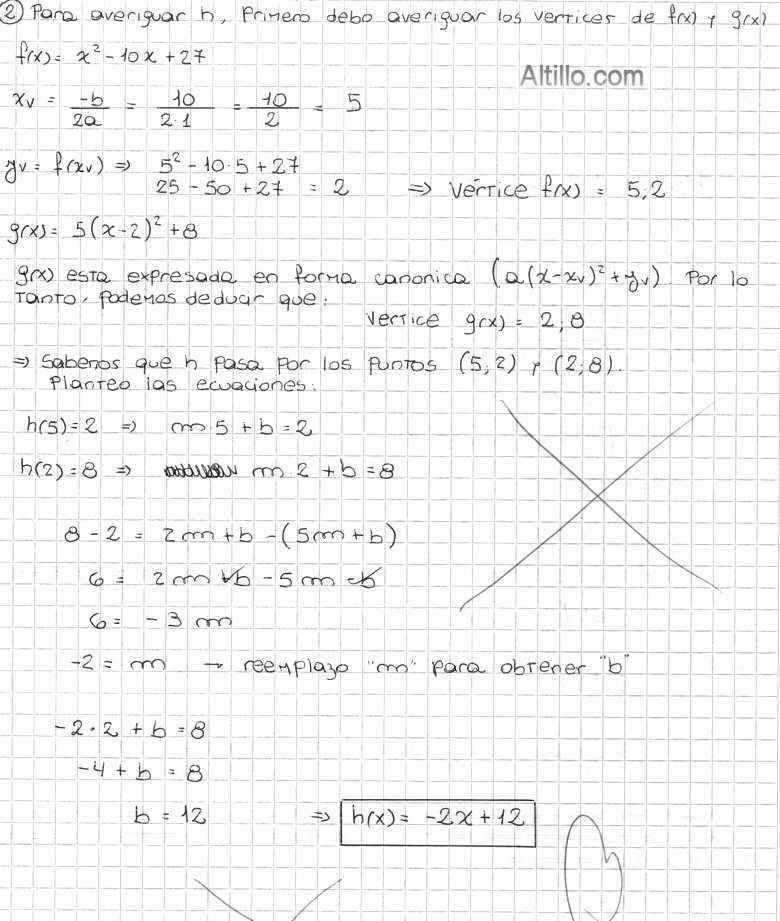 ② Para averiguar h, primero debo averiguar los vertices de f(x) y g(x)
f(x) = x² - 10x + 27
Altillo.com
xv = -b/2a = 10/2·1 = 10/2 = 5
yv = f(xv) ⇒ 5² - 10·5 + 27
25 - 50 + 27 = 2 ⇒ vértice f(x) = 5,2
g(x) = 5(x-2)² + 8
g(x) esta expresada en forma canonica (a(x-xv)² + yv) Por lo
tanto, podemos deducir que:
vertice g(x) = 2,8
⇒ Sabemos que h pasa por los puntos (5;2) y (2;8).
Planteo las ecuaciones.
h(5) = 2 ⇒ m 5 + b = 2
h(2) = 8 ⇒ m 2 + b = 8
8 - 2 = 2m + b - (5m + b)
6 = 2m + b - 5m - b
6 = -3 m
-2 = m → reemplazo "m" para obtener "b"
-2·2 + b = 8
-4 + b = 8
b = 12 ⇒ h(x) = -2x + 12